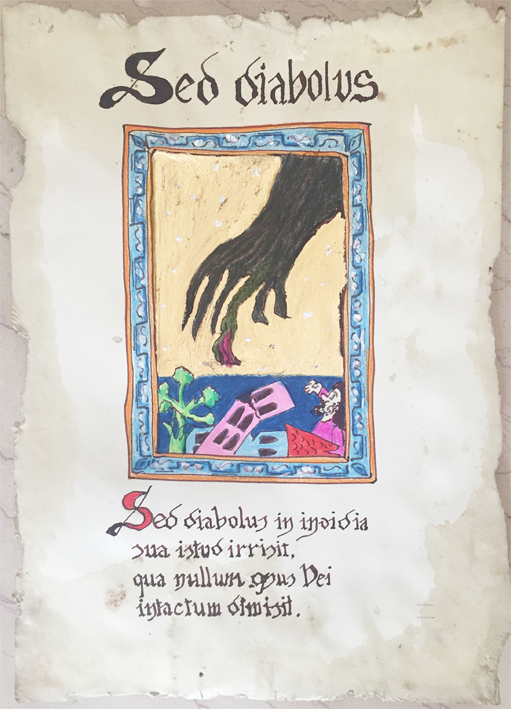 Sed diabolus
Sed diabolus in invidia
sua istud irrisit,
qua nullum opus Dei
intactum dimisit.